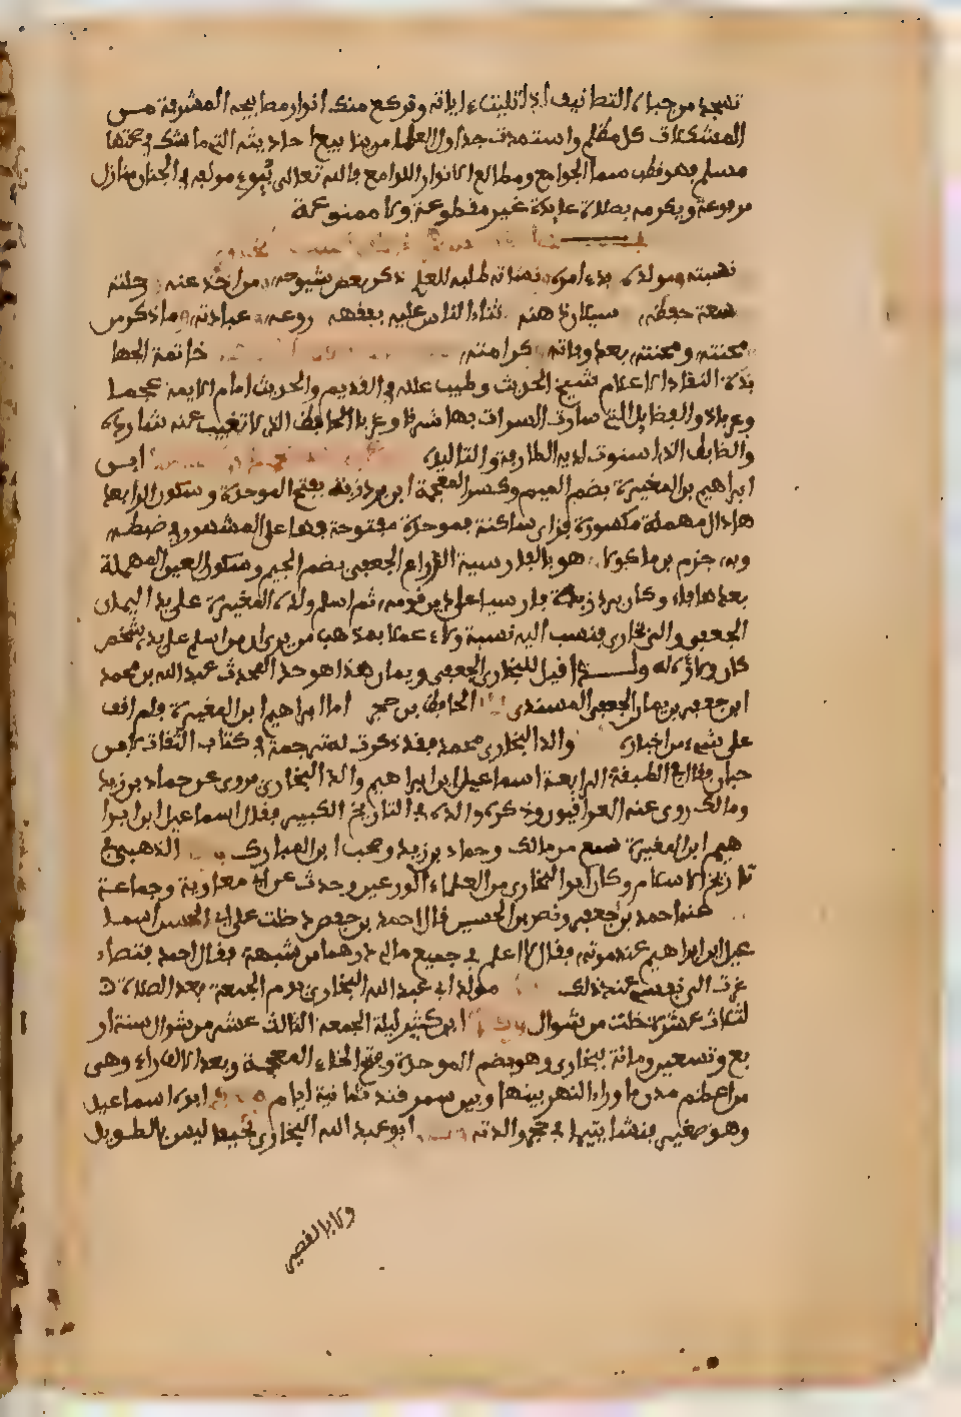 تسجد من جباه التصانيف اذا تليت ءاياته وتركع منك انوار مصابيحه المشرقة من
المشكلات كل مظلم واستمدت جداول العلما من ينابيع احاديثه التي ما شك في صحتها
مسلم فهو قطب سما الجوامع ومطالع الانوار اللوامع فالله تعالى يبوء مولفه في الجنان منازل
مرفوعة ويكرمه بصلاة عايدة غير مقطوعة ولا ممنوعة
نسبته ومولده بدء امره نشاته طلبه للعلم ذكر بعض شيوخه من اخذ عنه رحلته
سعة حفظه سيلان ذهنه ثناء الناس عليه بفقهه روعه عبادته ما ذكر من
محنته ومحنته بعد وفاته كرامته خاتمة الجها
بذة النقاد الاعلام شيخ الحديث وطبيب علله في القديم والحديث امام الايمة عجما
وعربا ذو الفضايل التي سارت السراة بها شرقا وغربا الحافظ الذي لا تغيب عنه شاردة
والضابط الذي استوت لديه الطارفة والتالدة ابن
ابراهيم بن المغيرة بضم الميم وكسر المعجمة ابن بردزبه بفتح الموحدة وسكون الرا بعد
ها دال مهملة مكسورة فزاي ساكنة فموحدة مفتوحة فها على المشهور في ضبطه
وبه جزم بن ماكولا هو بالفارسية الزراع الجعفي بضم الجيم وسكون العين المهملة
بعدها فاء وكان بردزبه فارسيا على دين قومه ثم اسلم ولده المغيرة على يد اليمان
الجعفي والي بخارى فنسب اليه نسبة ولاء عملا بمذهب من يرى ان من اسلم على يد شخص
كان ولاؤه له ولذا قيل للبخاري الجعفي ويمان هذا هو جد المحدث عبد الله بن محمد
ابن جعفر بن يمان الجعفي المسندي الحافظ بن حجر اما ابراهيم ابن المغيرة فلم اقف
على شيء من اخباره والد البخاري محمد فقد ذكرت له ترجمة في كتاب الثقات لابن
حبان فقال في الطبقة الرابعة اسماعيل ابن ابراهيم والد البخاري يروي عن حماد بن زيد
ومالك روى عنه العراقيون وذكره ولده في التاريخ الكبير فقال اسماعيل ابن ابرا
هيم ابن المغيرة سمع من مالك وحماد بن زيد وصحب ابن المبارك الذهبي في
تاريخ الاسلام وكان ابو البخاري من العلماء الورعين وحدث عن ابي معاوية وجماعة
عنه احمد بن جعفر ونصر بن الحسين قال احمد بن حفص دخلت على ابي الحسن اسما
عيل ابن ابراهيم عند موته فقال لا اعلم في جميع مالي درهما من شبهة فقال احمد فتصاء
غرت الي نفسي عند ذلك مولد ابي عبد الله البخاري يوم الجمعة بعد الصلاة
لثلاث عشرة خلت من شوال ابن كثير ليلة الجمعة الثالث عشر من شوال سنة ار
بع وتسعين ومائة ببخارى وهو بضم الموحدة وفتح الخاء المعجمة وبعد الالف راء وهي
من اعظم مدن ما وراء النهر بينها وبين سمرقند ثمانية ايام ابوه اسماعيل
وهو صغير فنشا يتيما في حجر والدته ابو عبد الله البخاري نحيفا ليس بالطويل
ولا بالقصير